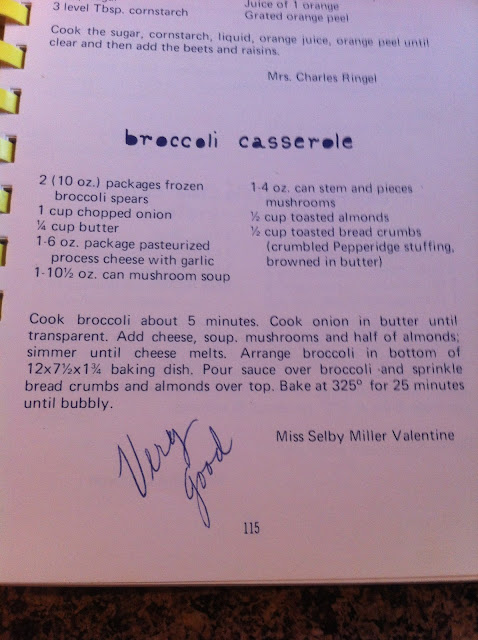 3 level Tbsp. cornstarch
Juice of 1 orange
Grated orange peel
Cook the sugar, cornstarch, liquid, orange juice, orange peel until
clear and then add the beets and raisins.
Mrs. Charles Ringel
broccoli casserole
2 (10 oz.) packages frozen
broccoli spears
1 cup chopped onion
¼ cup butter
1-6 oz. package pasteurized
process cheese with garlic
1-10½ oz. can mushroom soup
1-4 oz. can stem and pieces
mushrooms
½ cup toasted almonds
½ cup toasted bread crumbs
(crumbled Pepperidge stuffing,
browned in butter)
Cook broccoli about 5 minutes. Cook onion in butter until
transparent. Add cheese, soup. mushrooms and half of almonds;
simmer until cheese melts. Arrange broccoli in bottom of
12x7½x1¾ baking dish. Pour sauce over broccoli and sprinkle
bread crumbs and almonds over top. Bake at 325º for 25 minutes
until bubbly.
Miss Selby Miller Valentine
Very
good
115